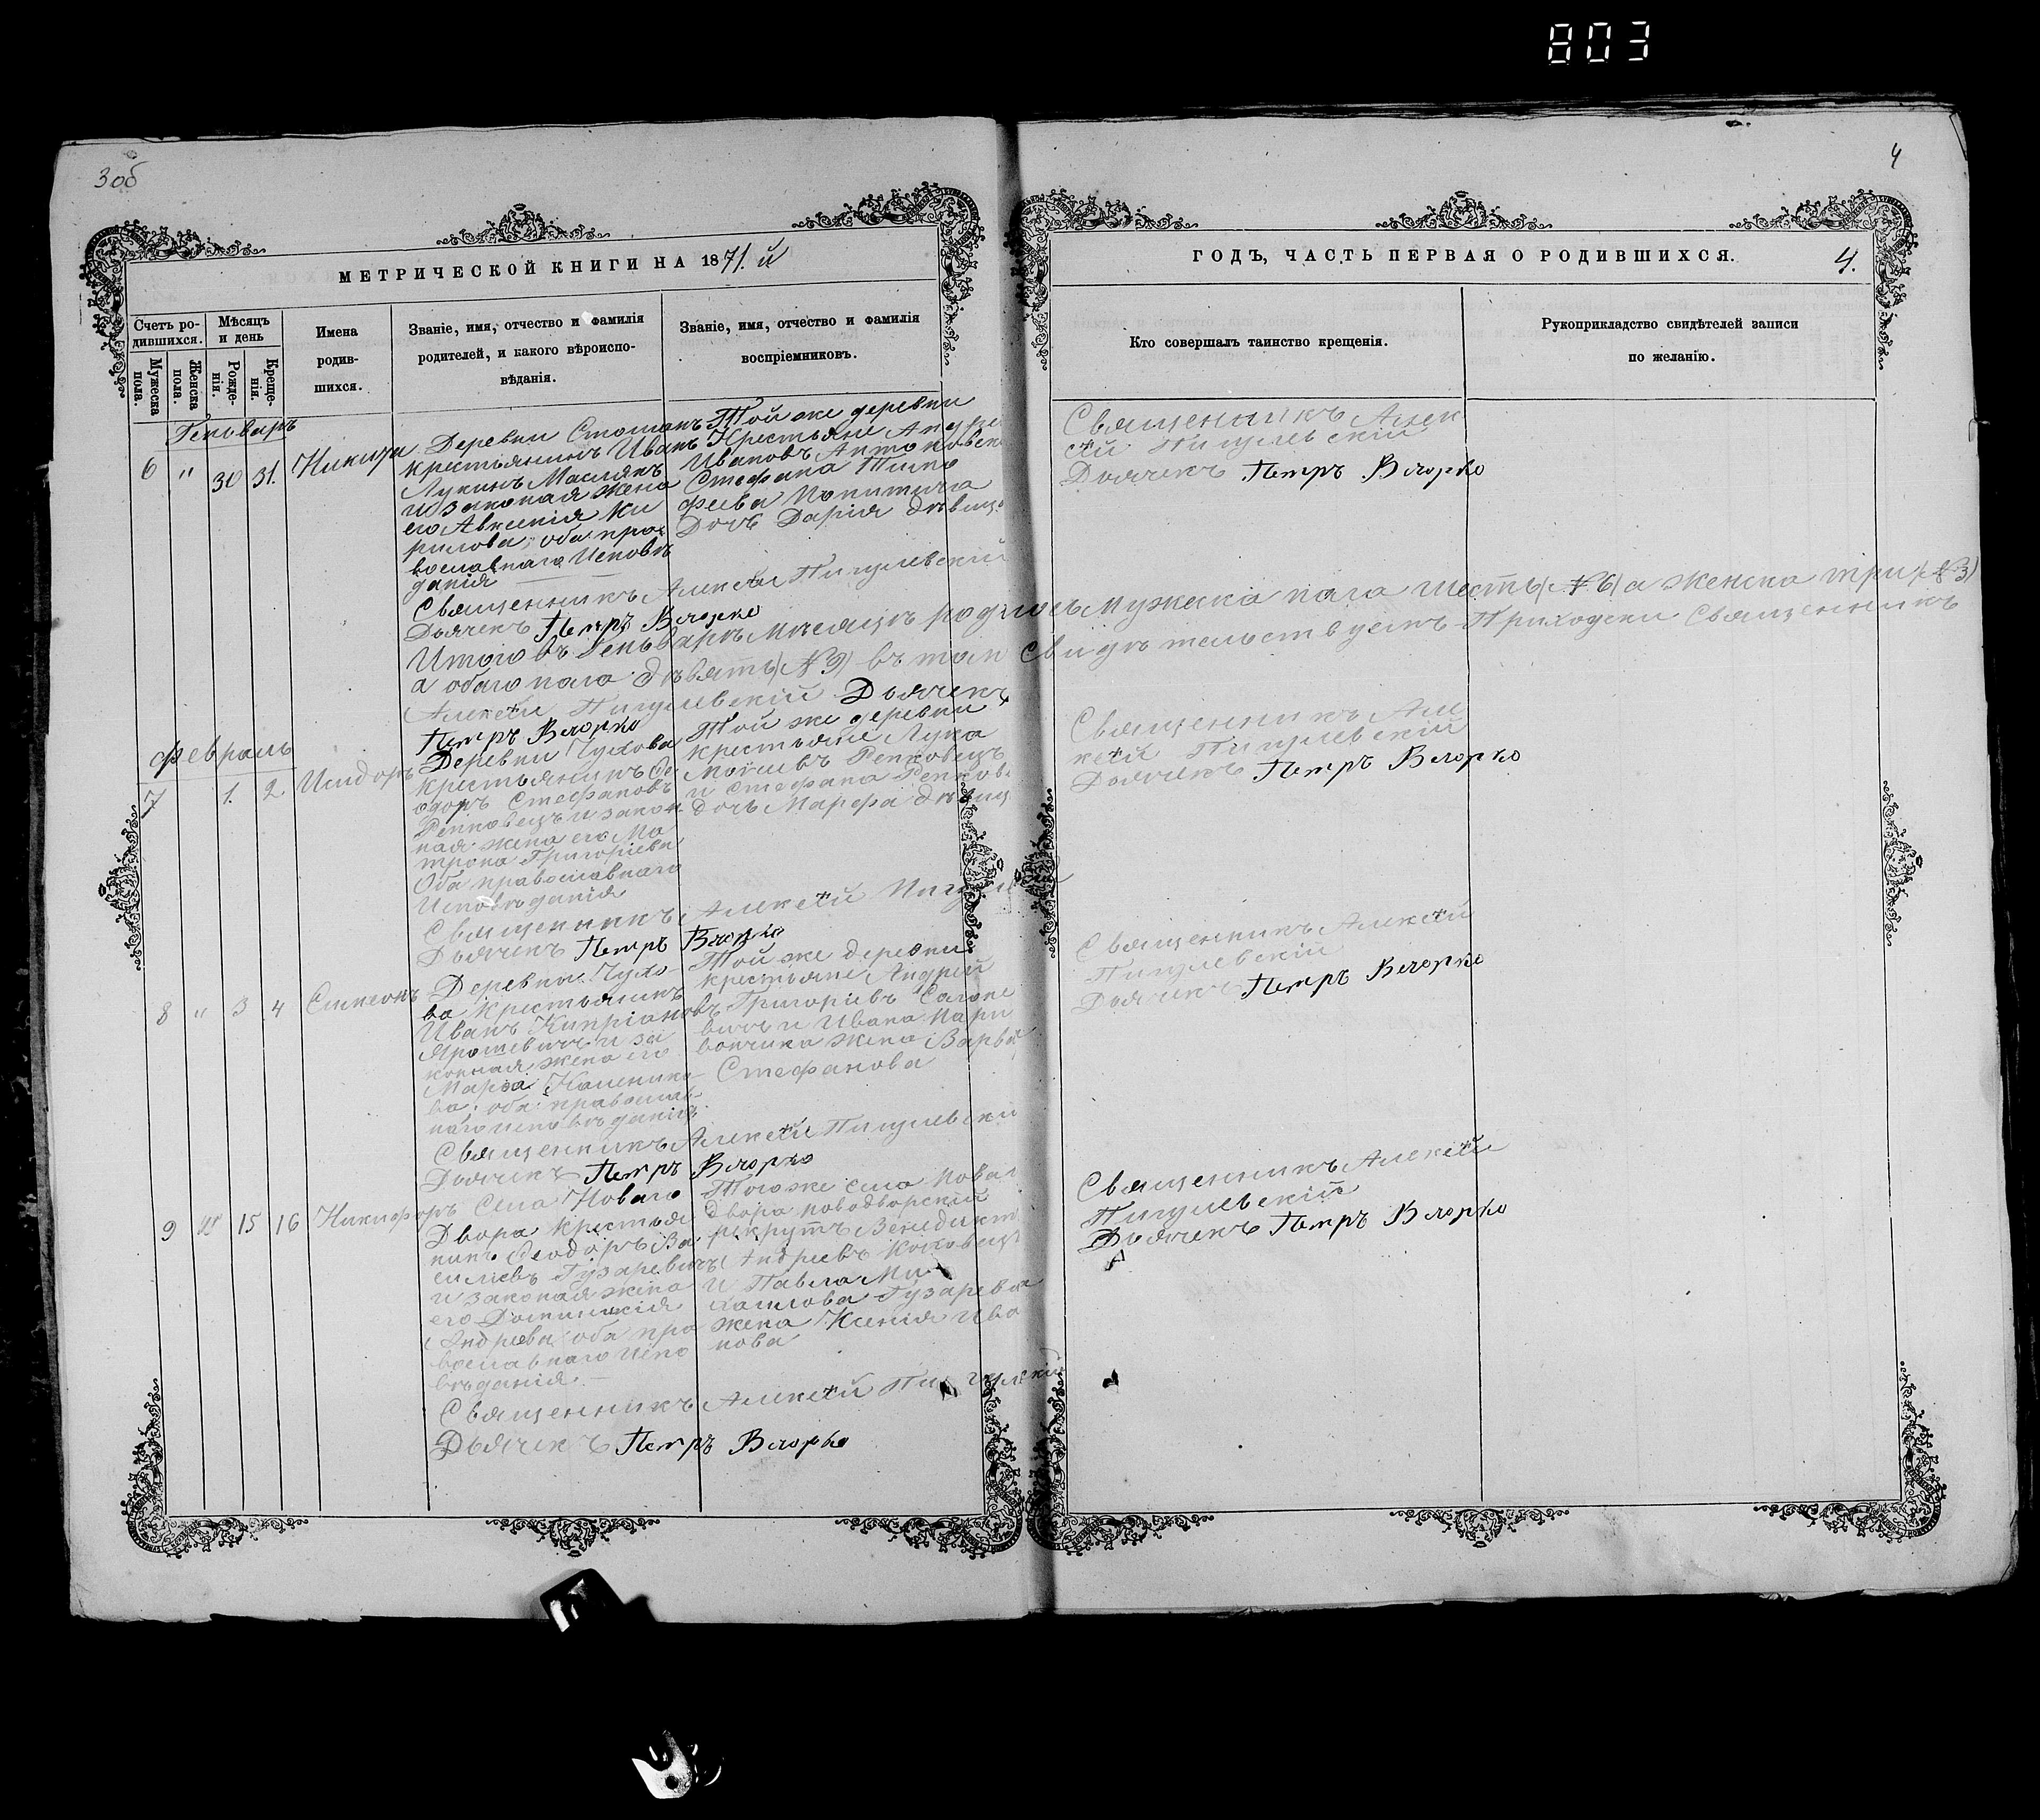 803
3 об
4
МЕТРИЧЕСКОЙ КНИГИ НА 1871. й
ГОДЪ, ЧАСТЬ ПЕРВАЯ О РОДИВШИХСЯ.
4.
Счетъ ро-
дившихся.
Мужеска
пола.
Женска
пола.
Мѣсяцъ
и день
Рожде-
нія.
Креще-
нія.
Имена
родив-
шихся.
Званіе, имя, отчество и фамилія
родителей, и какого вѣроиспо-
вѣданія.
Званіе, имя, отчество и фамилія
воспріемниковъ.
Кто совершалъ таинство крещенія.
Рукоприкладство свидѣтелей записи
по желанію.
Геньварь
6 " 30 31. Никита
Деревни
крестьянинъ Иванъ
Лукинъ Маслякъ
и законая жена
его Авксенія Ки
рилова, оба пра
вославнаго Исповѣ
данія
Той же деревни
Крестьяне Андрей
Ивановъ
Стефана Тимо
феева
Дочъ Дарія дѣвица
Священникъ Алек
сѣй Пигулевскій
Дьячекъ Петръ Вечорко
Священникъ Алексѣй Пигулевскій
Дьячекъ Петръ Вечорко
Итого въ Геньварѣ Мѣсяцѣ родилось мужеска пола шесть (№ 6) а женска три (№ 3)
а обаго пола дѣвять (№ 9) въ том свидѣтельствуемъ Приходски Священникъ
Алексѣй Пигулевскій Дьячекъ
Петръ Вечорко
Февраль
7 1. 2. Исидоръ
Деревни Чухова
крестьянинъ Ѳе
одоръ Стефановъ
Репковецъ и закон
ная жена его Ма
трона Григоріева
Оба православнаго
Исповѣданія
Той же деревни
крестьяне Лука
Репковецъ
и Стефана
дочь Марфа дѣвиц
Священникъ Але
ксѣй Пигулевскій
Дьячекъ Петръ Вечорко
Священникъ Алексѣй Пигулевскій
Дьячекъ Петръ Вечорко
8 " 3 4 Симеонъ
Деревни Чухо-
ва Крестьянинъ
Иванъ Кипріановъ
Ярошевичъ и за
конная жена его
Марѳа
ва: оба православ-
наго исповѣданія
Той же деревни
крестьяне Андрей
Григоріевъ
вичъ и Ивана
жена Варва
Стефанова
Священникъ Алексѣй
Пигулевскій
Дьячекъ Петръ Вечорко
Священникъ Алексѣй Пигулевски
Дьячекъ Петръ Вечорко
9 " 15 16 Никифоръ
Села Новаго
Двора крестья
нинъ Ѳеодоръ Ва
силіевъ Гузаревичъ
и законая жена
его Домникія
Андреева оба пра
вославнаго испо
вѣданія. —
Того же села Новаг
двора новодворскій
рекрутъ Венедикт
Андреевъ
и Павла Ми
хайлова Гузарева
жена Ксенія Ива
нова
Священникъ Алексѣй
Пигулевскій
Дьячекъ Петръ Вечорко
Священникъ Алексѣй Пигулевскій
Дьячекъ Петръ Вечорко